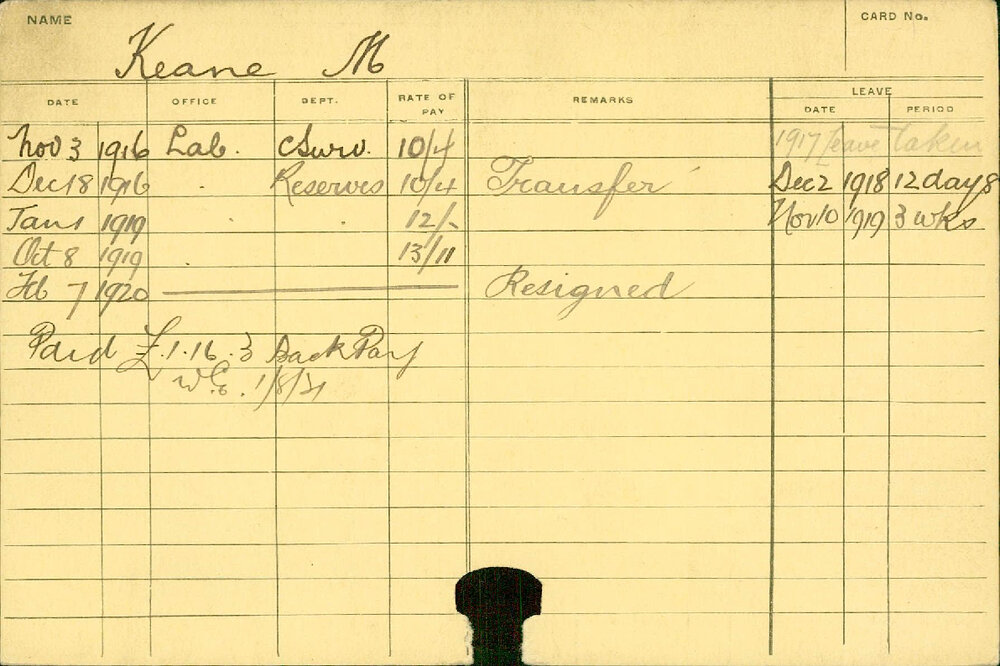 NAME
CARD No.
Keane M
DATE OFFICE DEPT. RATE OF PAY REMARKS LEAVE
DATE PERIOD
1917 Leave taken
Nov 3 1916 Lab. Surv. 10/4
Dec 18 1916 . Reserves 10/4 Transfer Dec 2 1918 12 days
Jan 1 1919 . . 12/- Nov 10 1919 3 wks
Oct 8 1919 13/11
Feb 7 1920 Resigned
Paid £1.16.3 Back Pay
W.E. 1/8/21